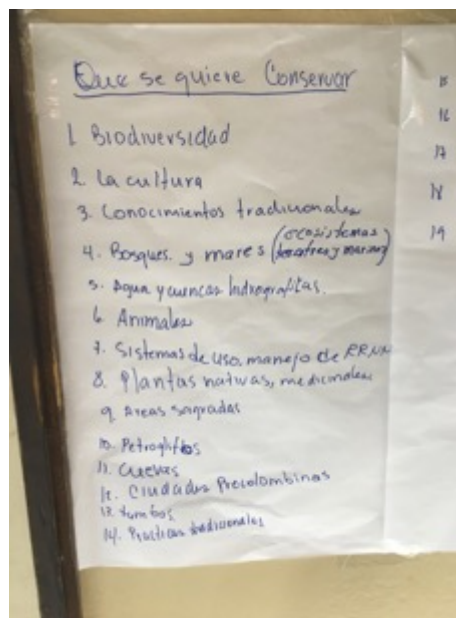 Que se quiere Conservar
1 Biodiversidad
2. La cultura
3. Conocimientos tradicionales
4. Bosques. y mares (ecosistemas terrestres y marinos)
5. Agua y cuencas hidrográficas.
6 Animales
7. Sistemas de uso, manejo de RRNN
8. Plantas nativas, medicinales
9 Areas sagradas
10. Petroglifos
11. Cuevas
12. Ciudades Precolombinas
13. tumbas
14. Practicas tradicionales
15
16
17
18
19